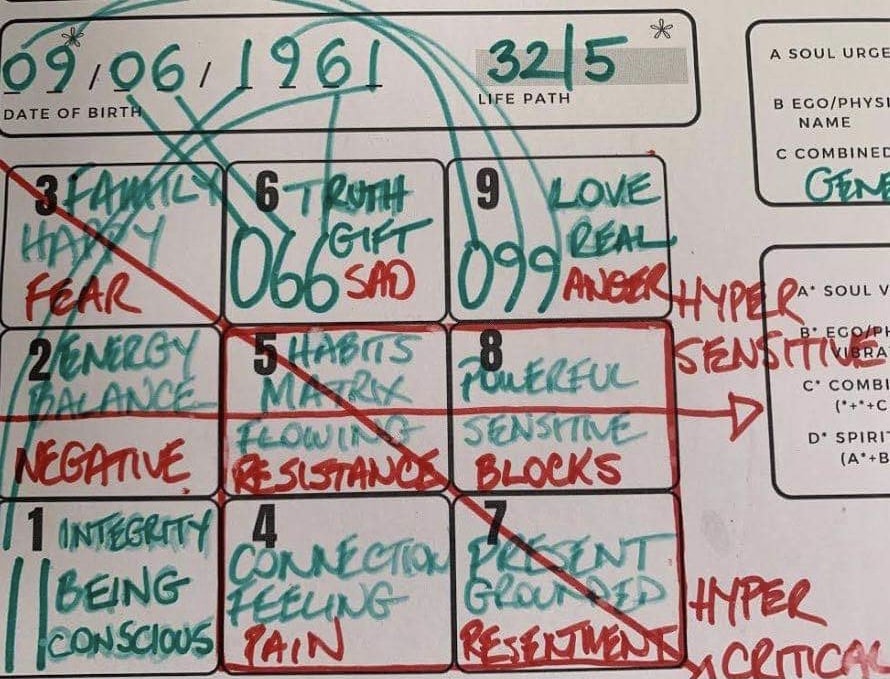 09*/06/1961
DATE OF BIRTH
32/5 *
LIFE PATH
A SOUL URGE
B EGO/PHYSI
NAME
C COMBINED
GENE
3 FAMILY
HAPPY
FEAR
6 TRUTH
GIFT
066 SAD
9 LOVE
REAL
099 ANGER
HYPER
SENSITIVE
A* SOUL V
B* EGO/PH
VIBRA
C* COMBI
(*+*+C
D* SPIRIT
(A*+B
2 ENERGY
BALANCE
NEGATIVE
5 HABITS
MATRIX
FLOWING
RESISTANCE
8
POWERFUL
SENSITIVE
BLOCKS
1 INTEGRITY
11 BEING
CONSCIOUS
4
CONNECTION
FEELING
PAIN
7
PRESENT
GROUNDED
RESENTMENT
HYPER
CRITICAL